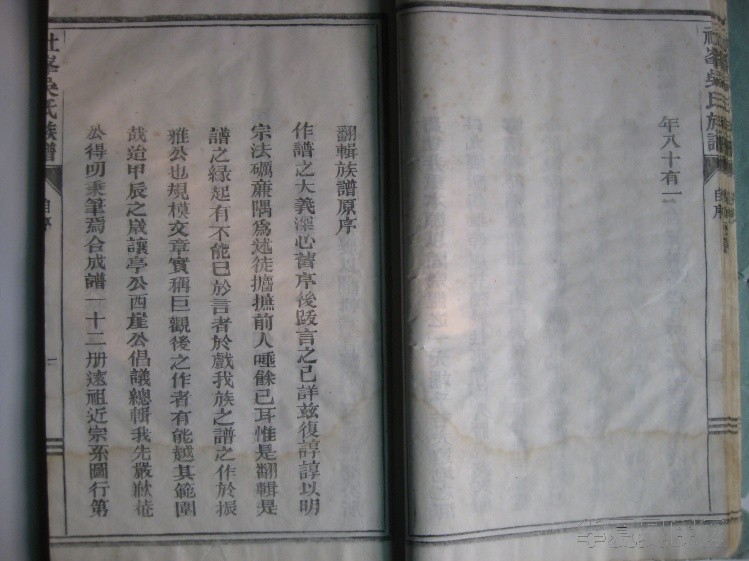 社峯吳氏族譜
自序
年八十有一
翻輯族譜原序
作譜之大義深心舊序後跋言之已詳茲復諄諄以明
宗法礪廉隅爲述徒摭前人唾餘已耳惟是翻輯是
譜之緣起有不能已於言者於戲我族之譜之作於振
雅公也規模文章實稱巨觀後之作者有能越其範圍
哉迨甲辰之歲讓亭公西崖公倡議總輯我先嚴猷菴
公得叨秉筆焉合成譜一十二册遠祖近宗系圖行第
社峯吳氏族譜
自序